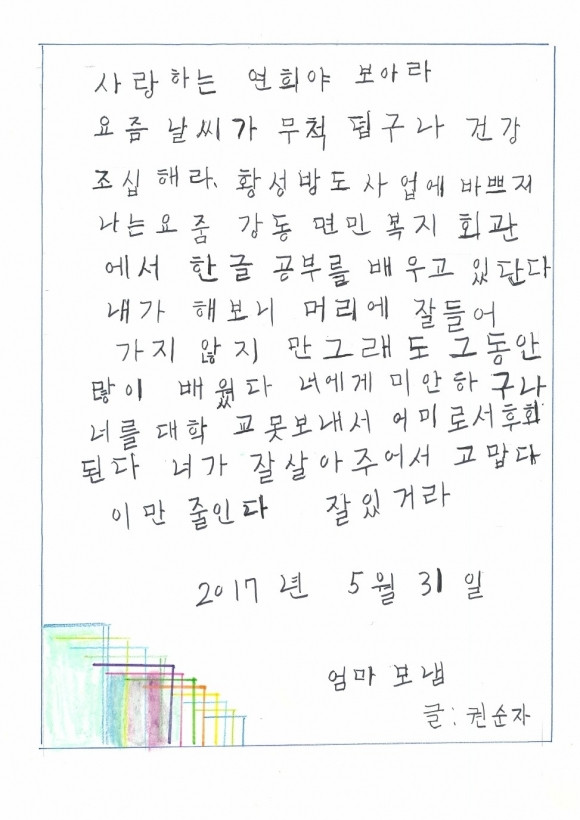 사랑하는 연희야 보아라
요즘 날씨가 무척 덥구나 건강
조십 해라. 황성방도 사업에 바쁘지
나는 요줌 강동 면민 복지 회관
에서 한글 공부를 배우고 있단다
내가 해보니 머리에 잘들어
가지 않지 만 그래도 그동안
많이 배웠다 너에게 미안하 구나
너를 대학 교못보내서 어미로서후회
된다 너가 잘살아주어서 고맙다
이만 줄인다 잘있거라
2017년 5월 31일
엄마 보냄
글: 권순자